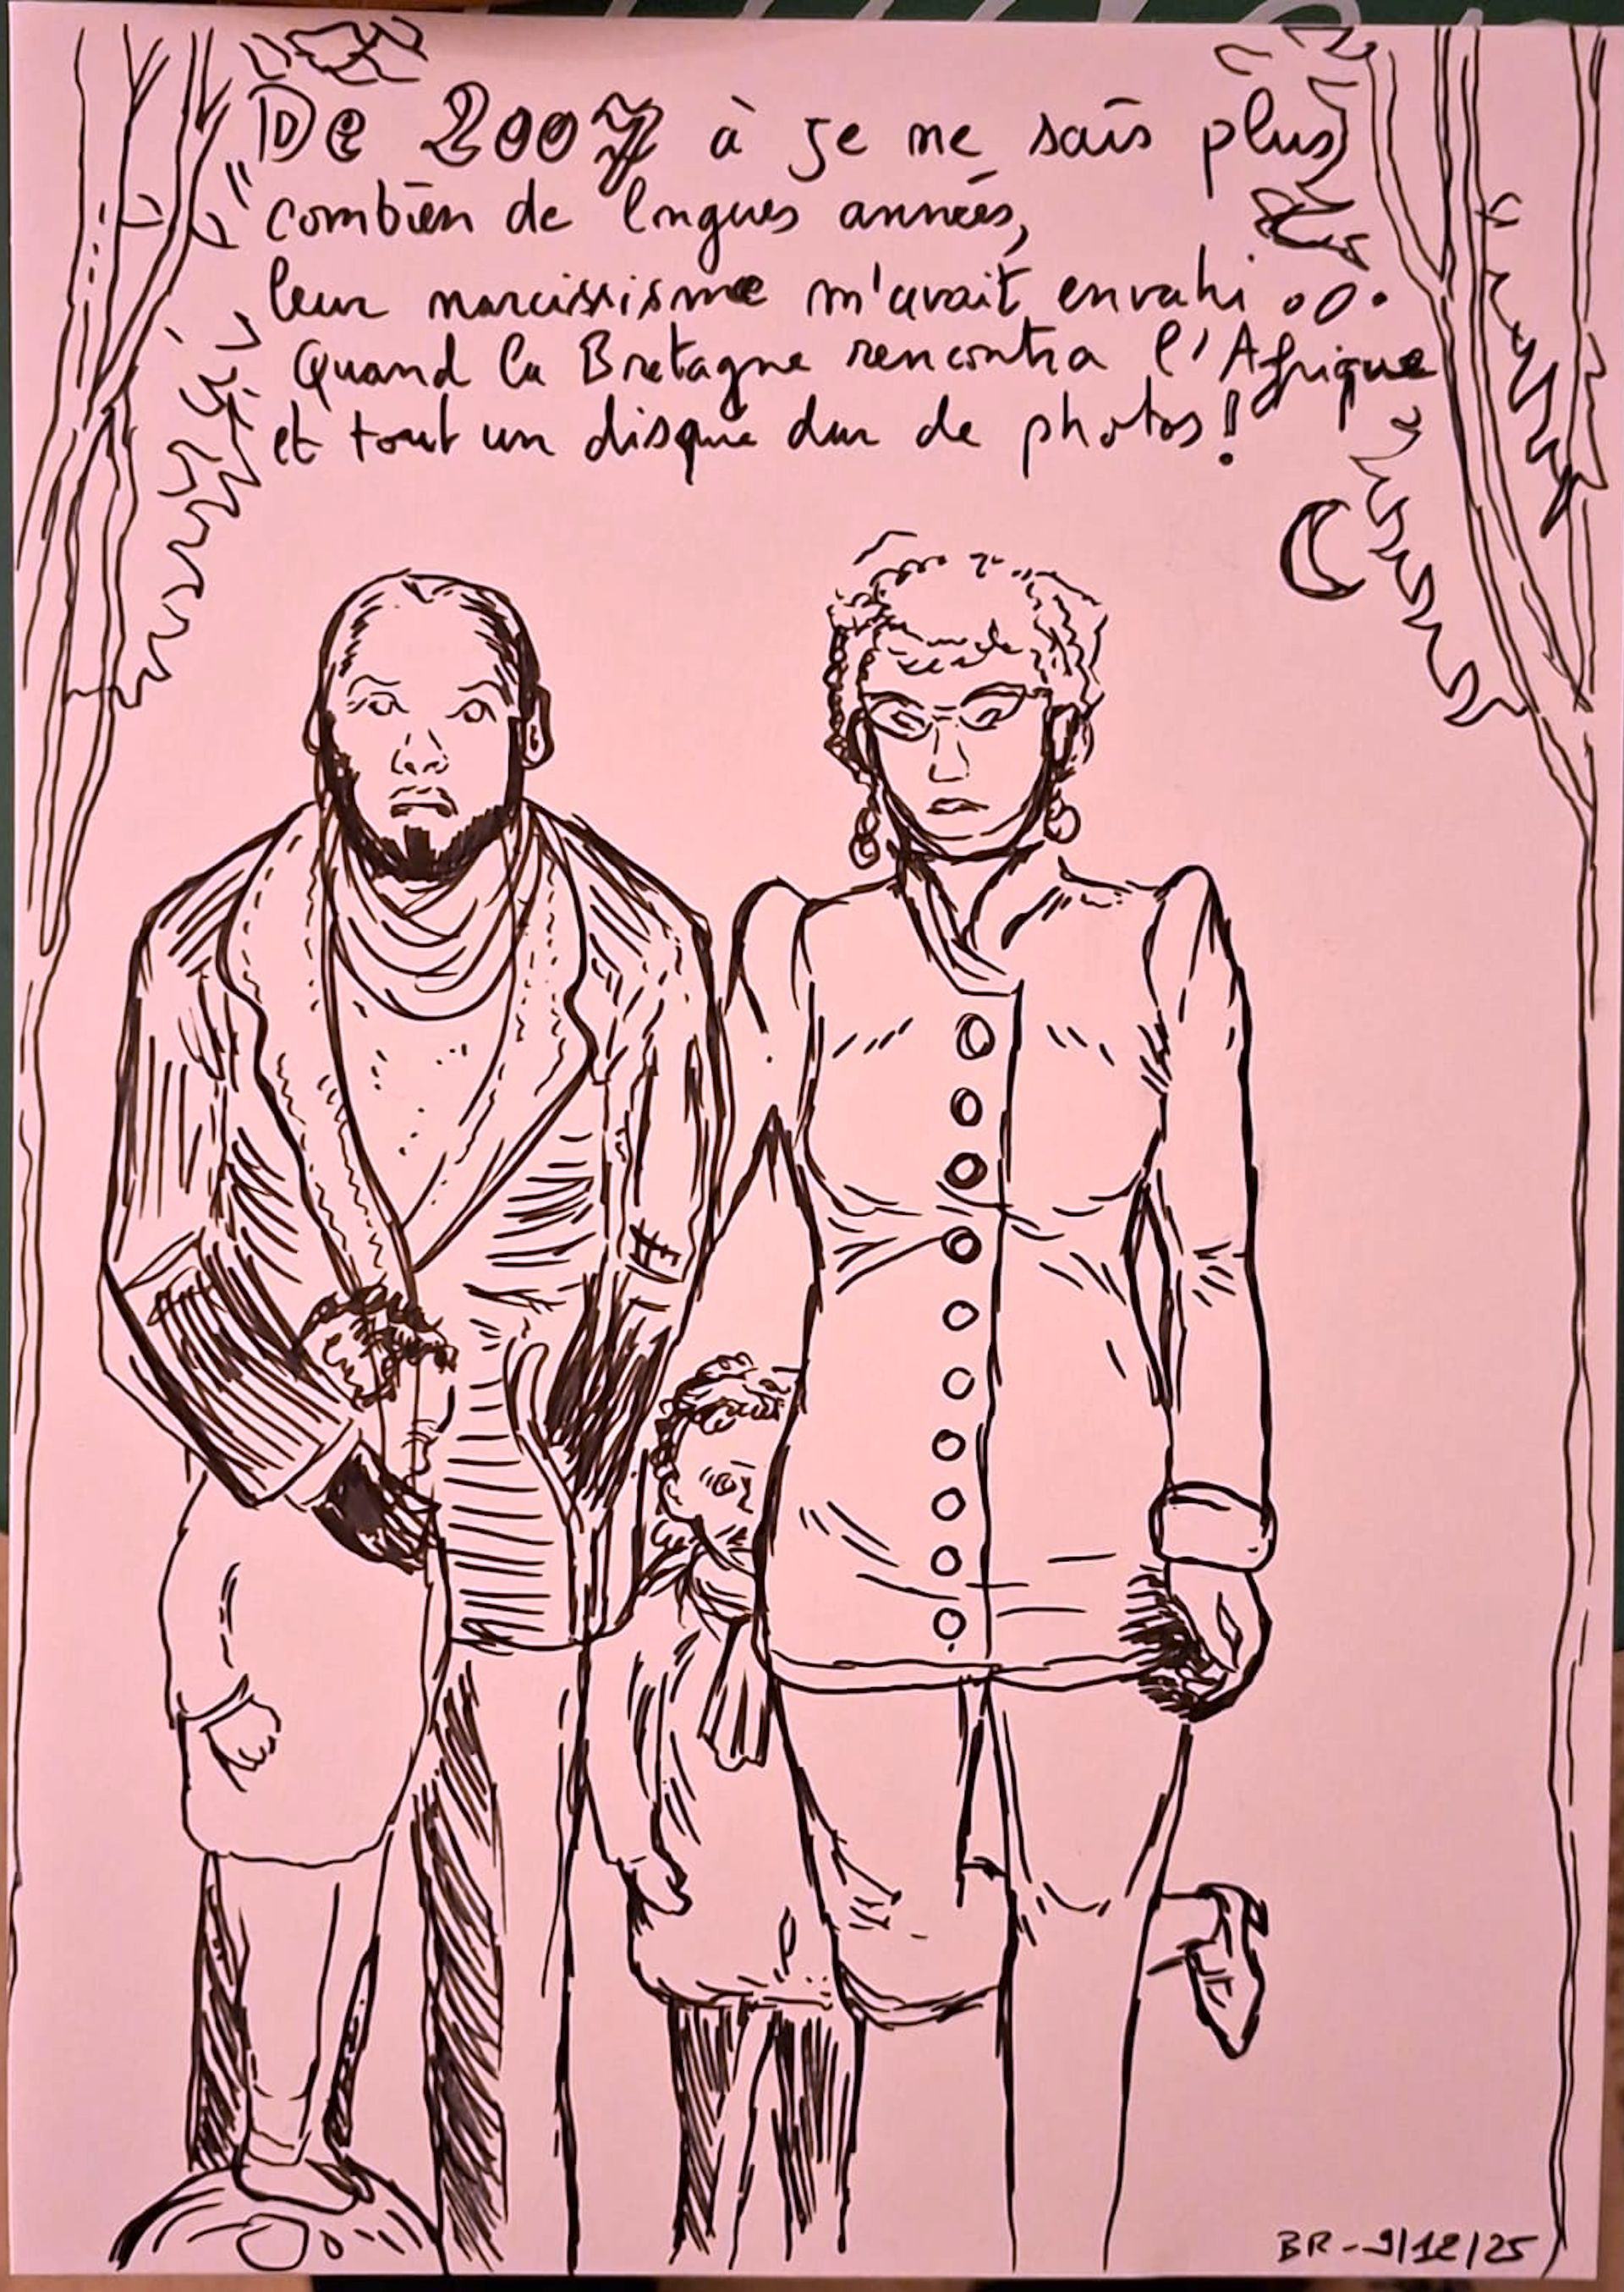 De 2007 à je ne sais plus
"combien de lngues années,
leur narcissisme m'avait envahi...
Quand la Bretagne rencontra l'Afrique
et tout un disque dur de photos!
BR - 9/12/25